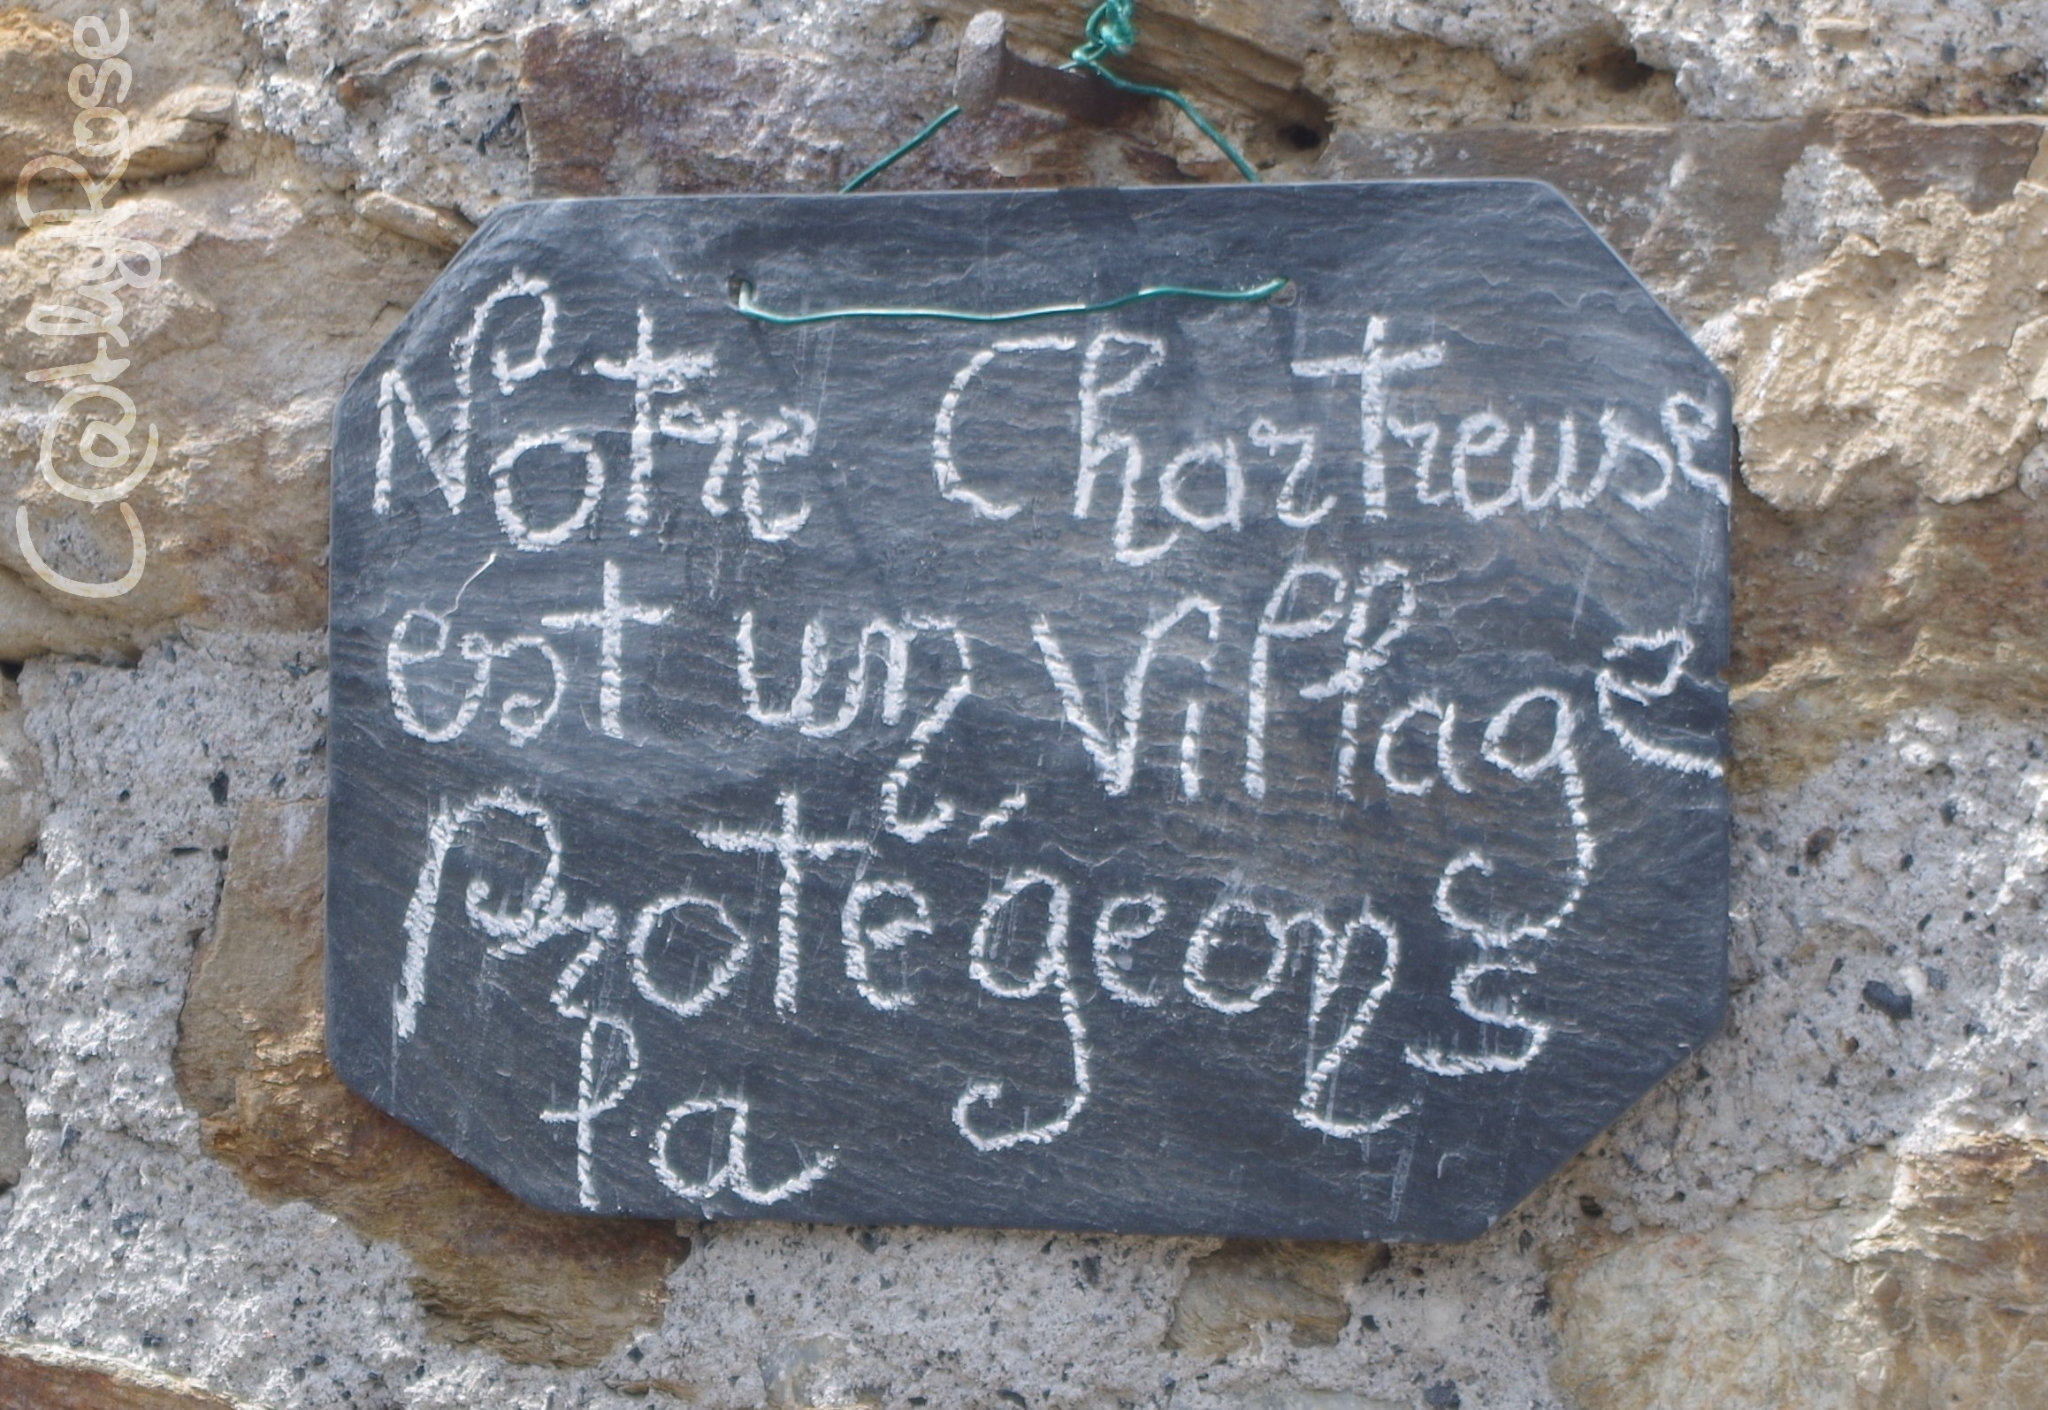 Notre Chartreuse
est un Village
Protégeons
la
C@thyRose